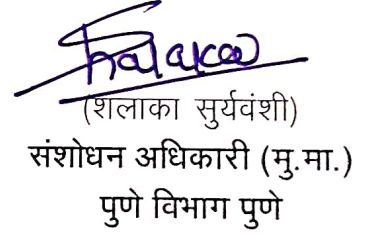 (शलाका सुर्यवंशी)
संशोधन अधिकारी (मु.मा.)
पुणे विभाग पुणे